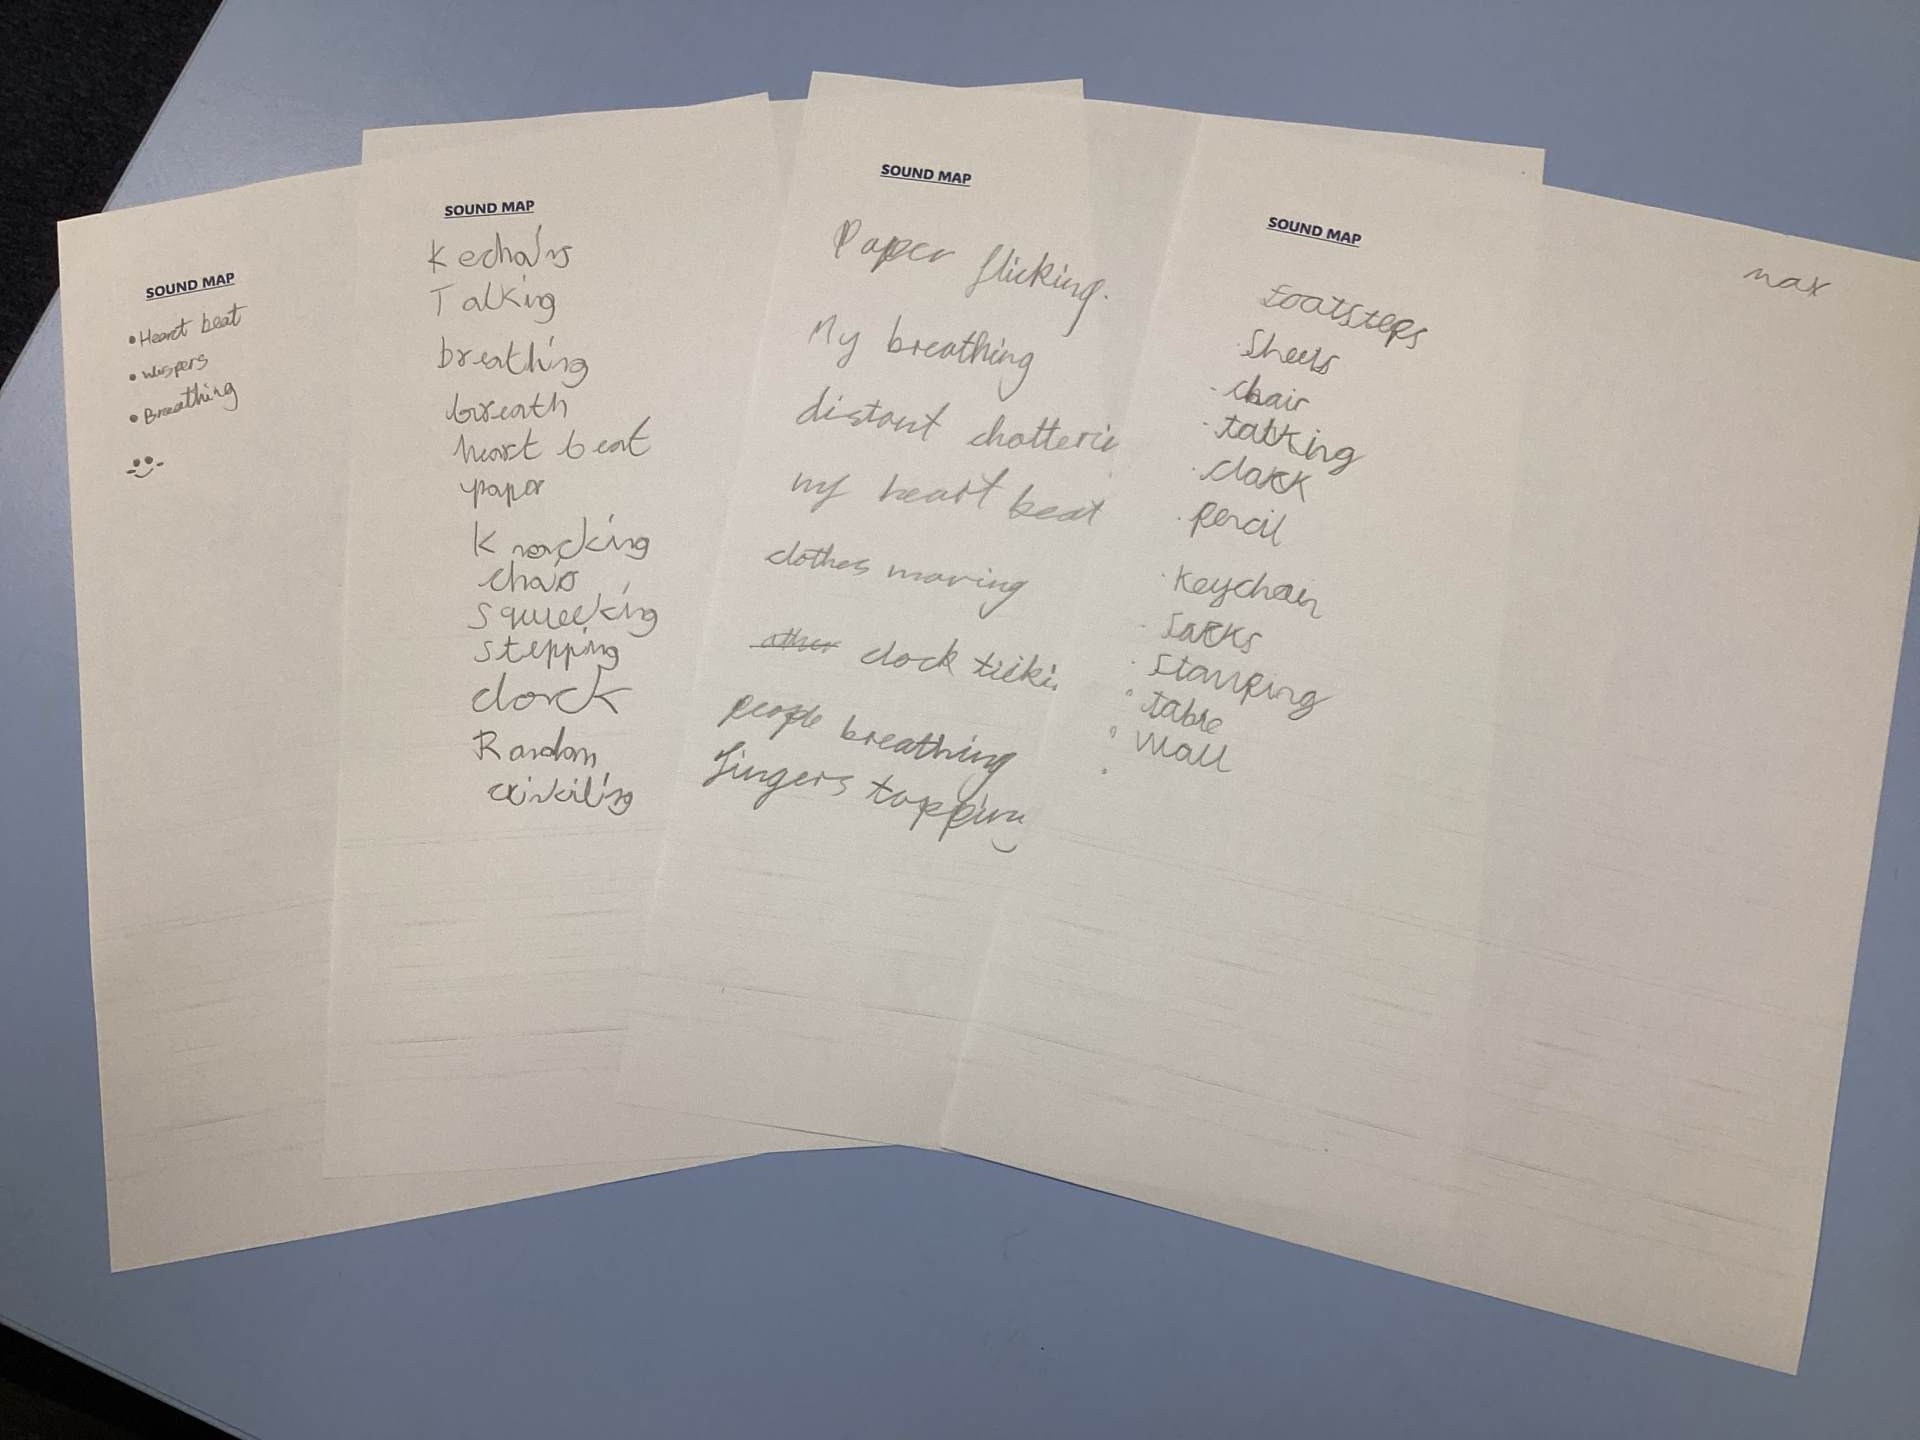 SOUND MAP
• Heart beat
• whispers
• Breathing
SOUND MAP
Kechains
Talking
breathing
breath
heart beat
paper
Knocking
chair
squeeking
stepping
clock
Random
SOUND MAP
Paper flicking.
My breathing
distant chatterin
my heart beat
clothes moving
other clock tickin
people breathing
fingers tapping
SOUND MAP
max
footsteps
· chair
· talking
· pencil
· keychain
· stamping
• table
• wall